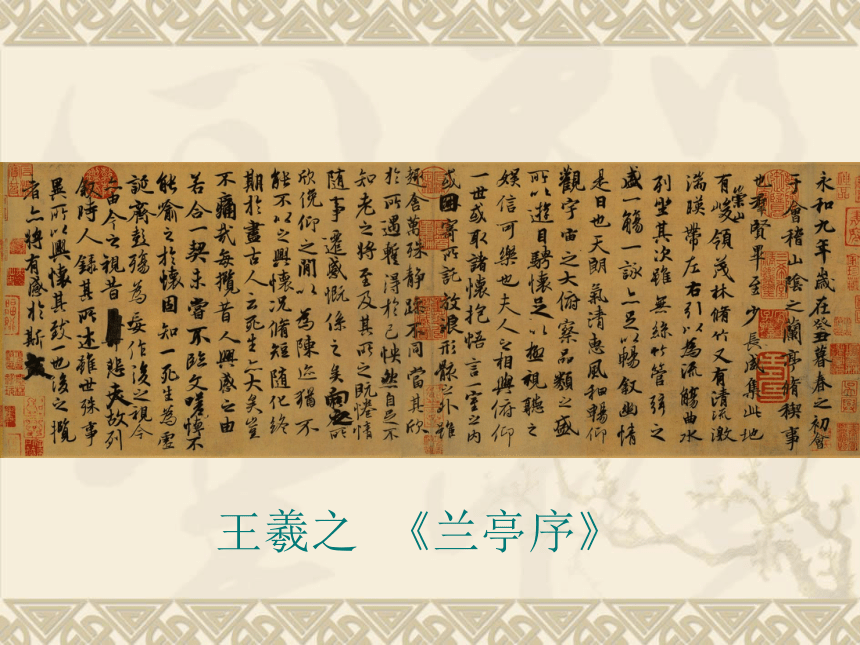 永和九年歲在癸丑暮春之初會
于會稽山陰之蘭亭脩稧事
也群賢畢至少長咸集此地
有崇山峻領茂林脩竹又有清流激
湍暎帶左右引以為流觴曲水
列坐其次雖無絲竹管弦之
盛一觴一詠亦足以暢敘幽情
是日也天朗氣清惠風和暢仰
觀宇宙之大俯察品類之盛
所以遊目騁懷足以極視聽之
娛信可樂也夫人之相與俯仰
一世或取諸懷抱悟言一室之內
或因寄所託放浪形骸之外雖
趣舍萬殊靜躁不同當其欣
於所遇蹔得於己怏然自足不
知老之將至及其所之既惓情
隨事遷感慨係之矣向之所
欣俛仰之閒以為陳迹猶不
能不以之興懷況脩短隨化終
期於盡古人云死生亦大矣豈
不痛哉每攬昔人興感之由
若合一契未嘗不臨文嗟悼不
能喻之於懷固知一死生為虛
誕齊彭殤為妄作後之視今
亦由今之視昔悲夫故列
敘時人錄其所述雖世殊事
異所以興懷其致一也後之攬
者亦將有感於斯文
王羲之 《兰亭序》